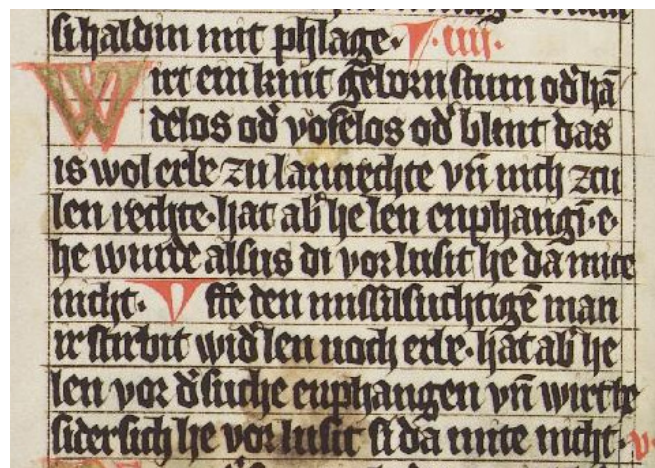 si haldin mit phlage· iiii·
Wirt ein kint gēborn stum od̕ hā
delos od̕ voſelos od̕ blint das
is wol erbe zu lantrechte vn̄ nich zcu
len rechte· hat ab̕ he len enphangī· e·
he wurde alsus di vor lusit he da mite
nicht· Vffe den unselsuchtigē man
ir stirbit wid̕ len noch erbe· hat ab̕ he
len vor d̕ suche enphangen vn̄ wirt he
sider sich he vor lusit si da mite nicht· v·